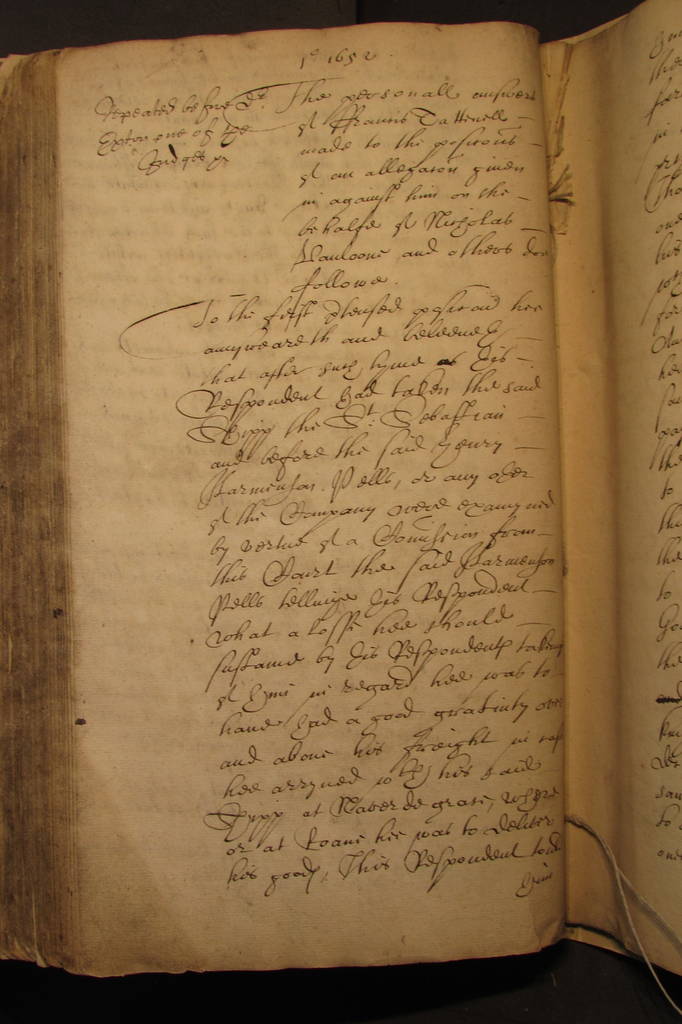 1652.
Repeated before Dr
Exton one of the
Judges
The personall answers
of Ffrancis Tattenell
made to the positions
of an allegation given
in against him on the
behalfe of Nicholas
and others doe
followe.
To the first pretensed position hee
answeareth and beleeveth
that after such tyme as this
Respondent had taken the said
Shipp the St. Sebastian
and before the said Henry
Harmenson Pells, or any other
of the Company were examyned
by vertue of a Comission from
this Court the said Harmenson
Pells tellinge this Respondent
what a losse hee should
sustaine by this Respondents taking
of him in regard hee was to
have had a good gratuity over
and above his freight in case
hee arryved with his said
Shipp at Haver de grace, where
or at Roane hee was to deliver
his goods, This Respondent told
him